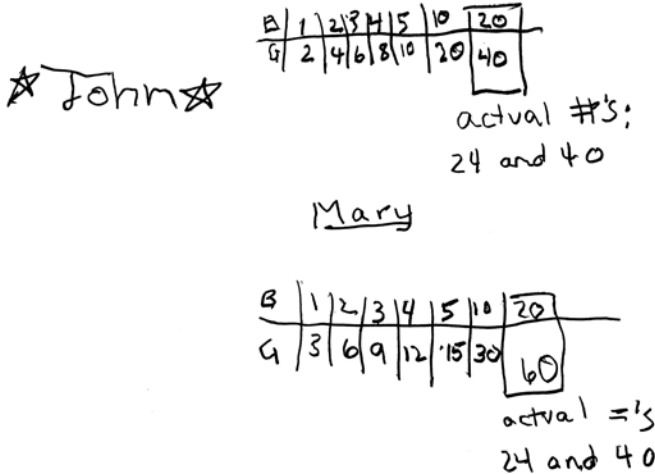 B 1 2 3 4 5 10 20
G 2 4 6 8 10 20 40
☆ John ☆
actual #'s:
24 and 40
Mary
B 1 2 3 4 5 10 20
G 3 6 9 12 15 30 60
actual ='s
24 and 40